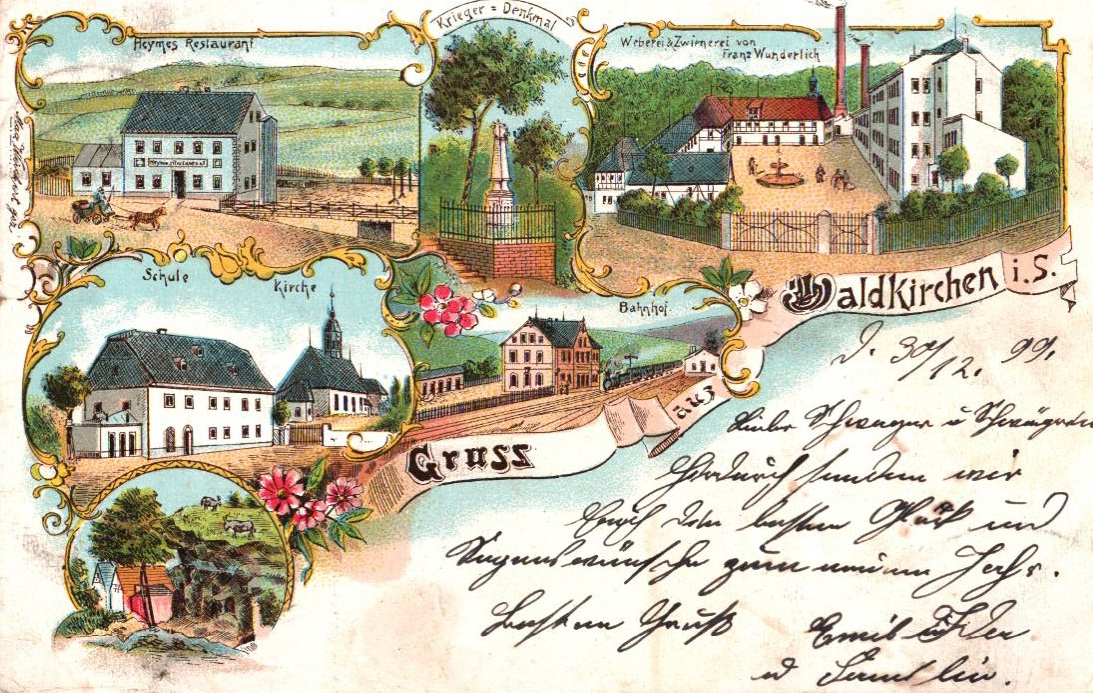 Heymes Restaurant
Krieger = Denkmal
Weberei & Zwirnerei von
Franz Wunderlich
Heymes Restaurant
Schule
Kirche
Bahnhof.
Gruss aus Waldkirchen i. S.
d. 30/12. 99.
Lieber Schwager u Schwägerin
Hirdurch senden wir
Euch die besten Glück und
Segenswünsche zum neuen Jahr.
Besten Gruß Emil
u Familie.